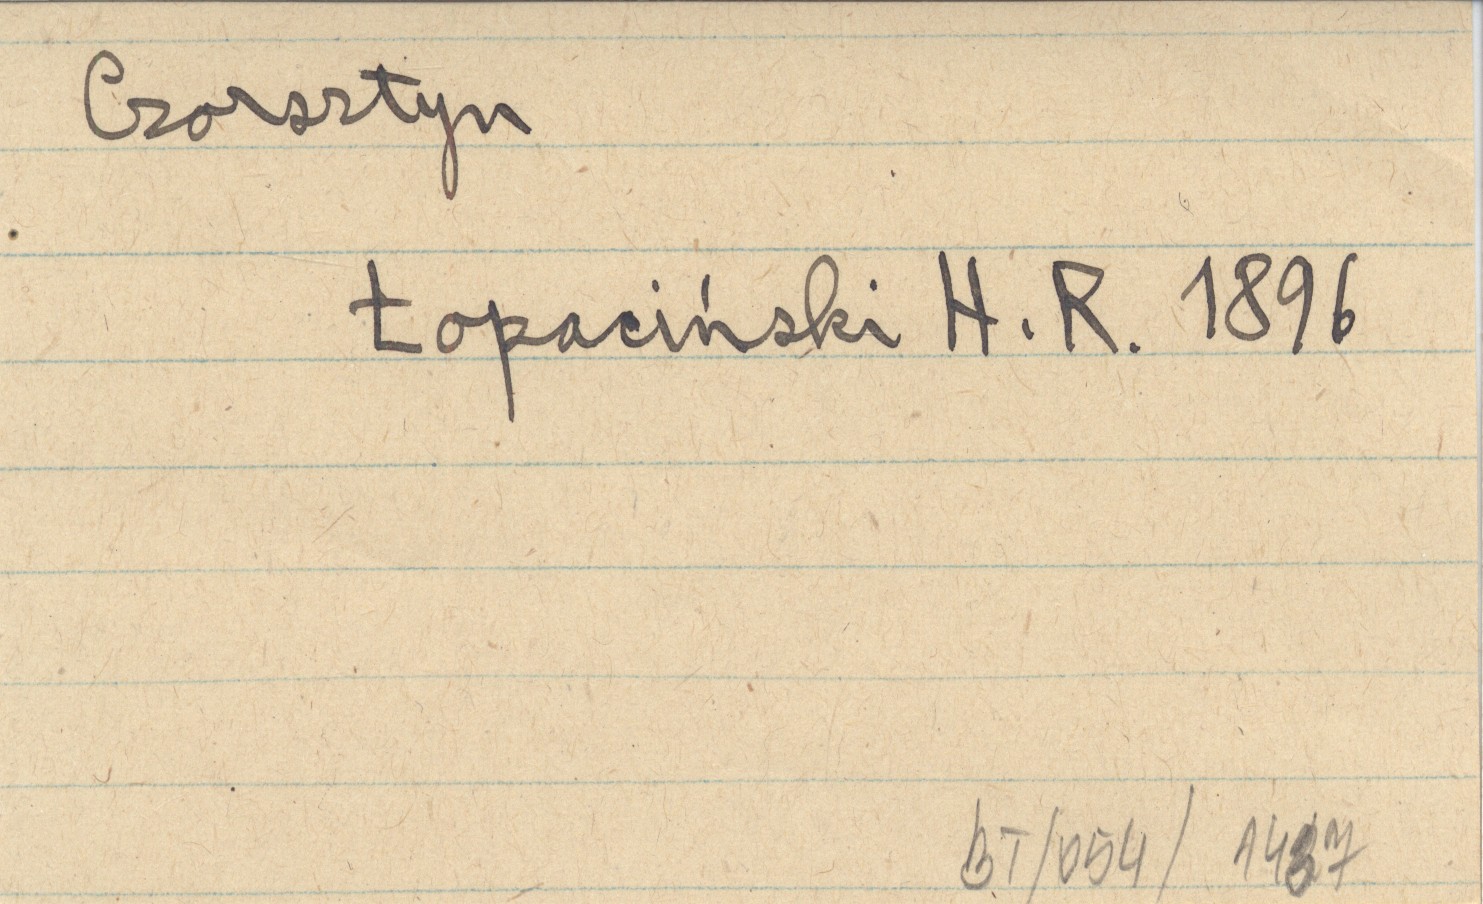 Czorsztyn
Łopaciński H. R. 1896
BT/054/ 1437